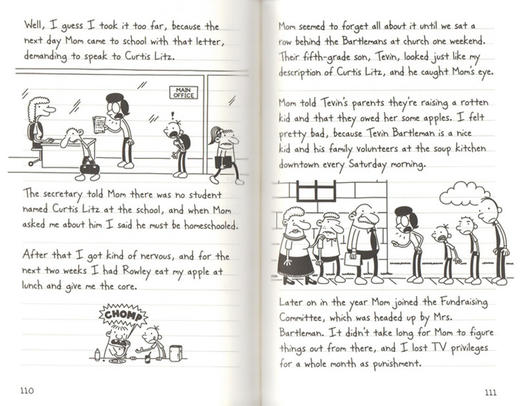 Well, I guess I took it too far, because the
next day Mom came to school with that letter,
demanding to speak to Curtis Litz.
MAIN
OFFICE
!
The secretary told Mom there was no student
named Curtis Litz at the school, and when Mom
asked me about him I said he must be homeschooled.
After that I got kind of nervous, and for the
next two weeks I had Rowley eat my apple at
lunch and give me the core.
CHOMP
110
Mom seemed to forget all about it until we sat a
row behind the Bartlemans at church one weekend.
Their fifth-grade son, Tevin, looked just like my
description of Curtis Litz, and he caught Mom's eye.
Mom told Tevin's parents they're raising a rotten
kid and that they owed her some apples. I felt
pretty bad, because Tevin Bartleman is a nice
kid and his family volunteers at the soup kitchen
downtown every Saturday morning.
Later on in the year Mom joined the Fundraising
Committee, which was headed up by Mrs.
Bartleman. It didn't take long for Mom to figure
things out from there, and I lost TV privileges
for a whole month as punishment.
111